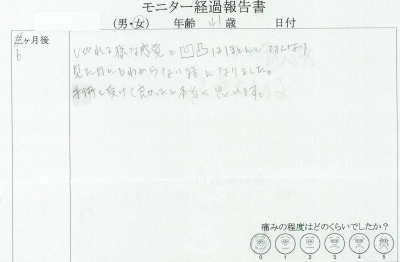 モニター経過報告書
(男・女) 年齢 41歳 日付
6ヶ月後
しびれる様な感覚と凹凸はほとんどなくなり
見た目にもわからない程になりました。
手術を受けて良かったと本当に思います。
痛みの程度はどのくらいでしたか?
0 1 2 3 4 5